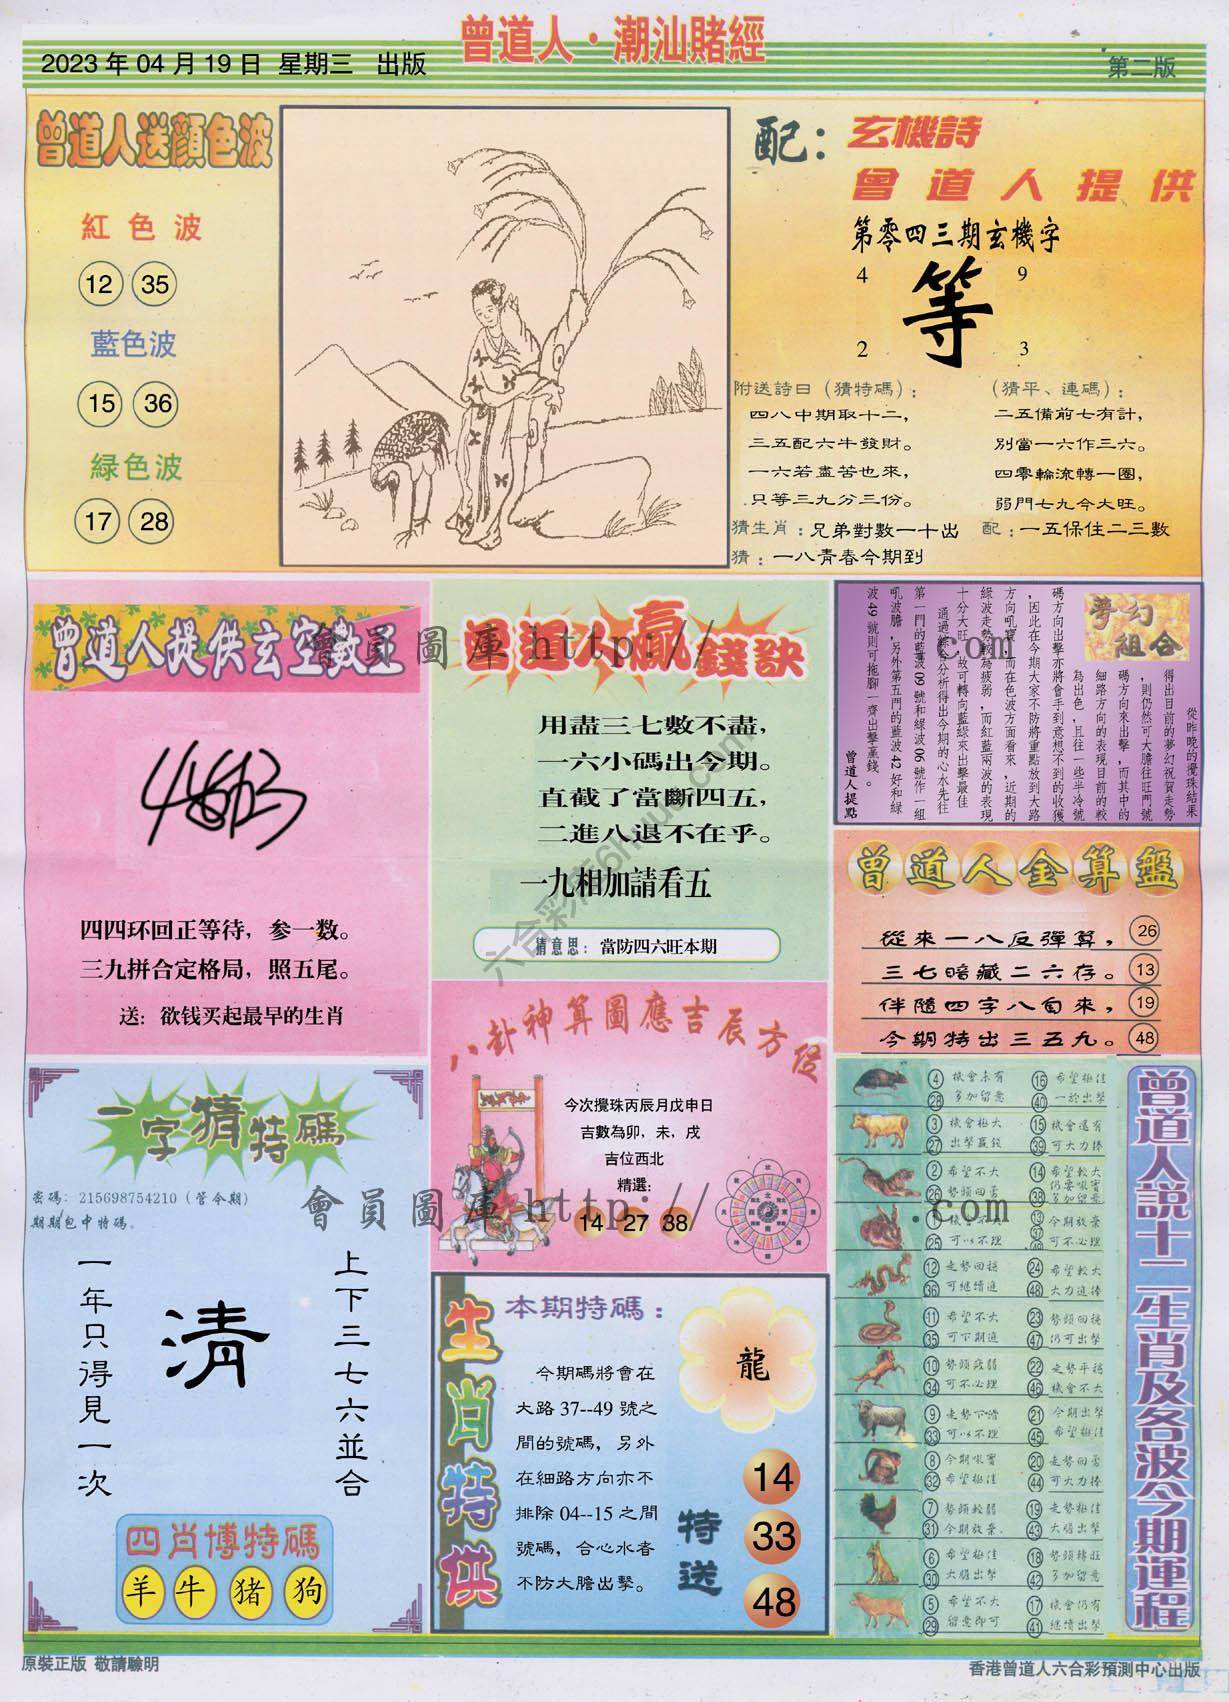 曾道人·潮汕賭經
2023 年 04 月 19 日 星期三 出版
第二版
曾道人送顏色波
紅色波
12 35
藍色波
15 36
緑色波
17 28
配：
玄機詩
曾道人提供
第零四三期玄機字
4 9
等
2 3
附送詩曰（猜特碼）：
四八中期取十二，
三五配六牛發財。
一六若盡苦也來，
只等三九分三份。
（猜平、連碼）：
二五備前七有計，
別當一六作三六。
四零輪流轉一圈，
弱門七九今大旺。
猜生肖：兄弟對數一十出
配：一五保住二三數
猜：一八青春今期到
曾道人提供玄空數王
四四环回正等待，参一数。
三九拼合定格局，照五尾。
送：欲钱买起最早的生肖
曾道人贏錢訣
用盡三七數不盡，
一六小碼出今期。
直截了當斷四五，
二進八退不在乎。
一九相加請看五
猜意思：當防四六旺本期
夢幻組合
從昨晚的攪珠結果
得出目前的夢幻祝賀走勢
，則仍然可大膽往旺門號
碼方向來出擊，而其中的
細路方向的表現目前的較
為出色，且往一些半冷號
碼方向出擊亦將會手到意想不到的收獲
，因此在今期大家不防將重點放到大路
方向吼寶，而在色波方面看來，近期的
綠波走勢較為疲弱，而紅藍兩波的表現
十分大旺，故可轉向藍綠來出擊最佳
通過綜合分析得出今期的心水先往
第一門的藍波 09 號和綠波 06 號作一組
吼波膽，另外第五門的藍波 42 好和綠
波 49 號則可拖腳一齊出擊贏錢。
曾道人提點
曾道人金算盤
從來一八反彈算， 26
三七暗藏二六存。 13
伴隨四字八自來， 19
今期特出三五九。 48
八卦神算圖應吉辰方位
今次攪珠丙辰月戊申日
吉數為卯，未，戌
吉位西北
精選：
14 27 38
一字猜特碼
密碼：215698754210（管令期）
期期包中特碼。
上下三七六並合
清
一年只得見一次
四肖博特碼
羊 牛 猪 狗
生肖特供
本期特碼：
龍
今期碼將會在
大路 37--49 號之
間的號碼，另外
在細路方向亦不
排除 04--15 之間
號碼，合心水者
不防大膽出擊。
特送
14
33
48
曾道人説十二生肖及各波今期運程
4 28 機會未有 多加留意
16 40 希望極佳 一於出擊
3 27 機會極大 出擊贏錢
15 39 機會還有 可大力捧
2 26 希望不大 勢頭回勇
14 38 希望較大 仍要吼實 多加留意
1 25 機會不大 可以不理
13 37 49 今期放棄 可不必理
12 36 走勢回穩 可繼續追
24 48 希望較大 大力追捧
11 35 希望不大 可下期追
23 47 勢頭回穩 仍可出擊
10 34 勢頭疲弱 可不必理
22 46 走勢平穩 機會不大
9 33 走勢下滑 可以不理
21 45 今期出擊 希望極佳
8 32 今期吼實 希望極佳
20 44 走勢回勇 可大力捧
7 31 勢頭較弱 今期放棄.
19 43 走勢極佳 大膽出擊
6 30 希望極佳 大膽出擊
18 42 勢頭轉旺 多加留意
5 29 希望不大 留意即可
17 41 機會仍有 繼續出擊
會員圖庫 http://
.com
會員圖庫 http://
.com
原裝正版 敬請驗明
香港曾道人六合彩預測中心出版